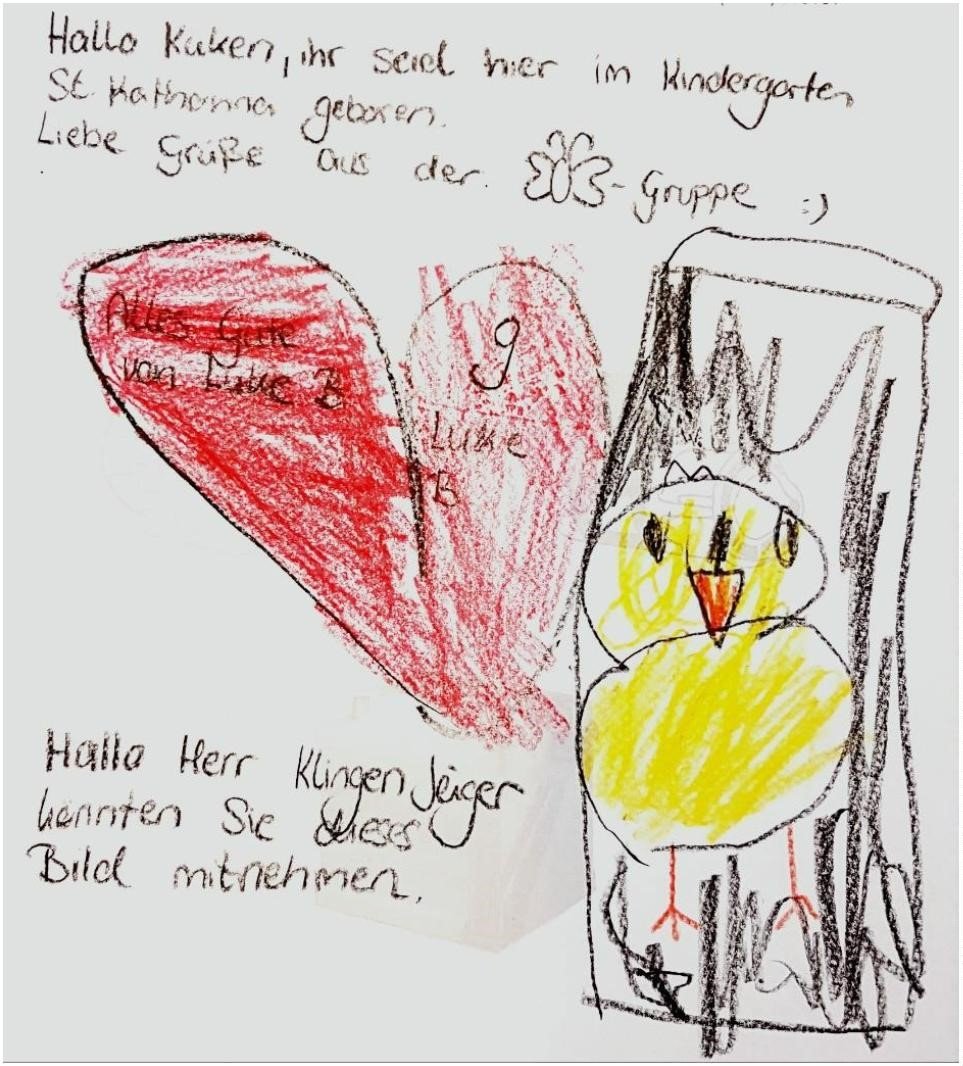 Hallo Küken, ihr seid hier im Kindergarten
St. Katharina geboren.
Liebe Grüße aus der -Gruppe :)
Alles Gute
von Luke B
g
Luke
B
Hallo Herr Klingen Jeiger
könnten Sie dieses
Bild mitnehmen.